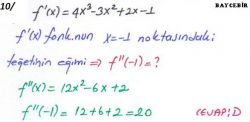 10/ BAYCEBİR
f'(x) = 4x³-3x²+2x-1
f'(x) fonk.nun x=-1 noktasındaki
teğetinin eğimi ⇒ f''(-1) = ?
f''(x) = 12x²-6x+2
f''(-1) = 12+6+2=20 CEVAP: D